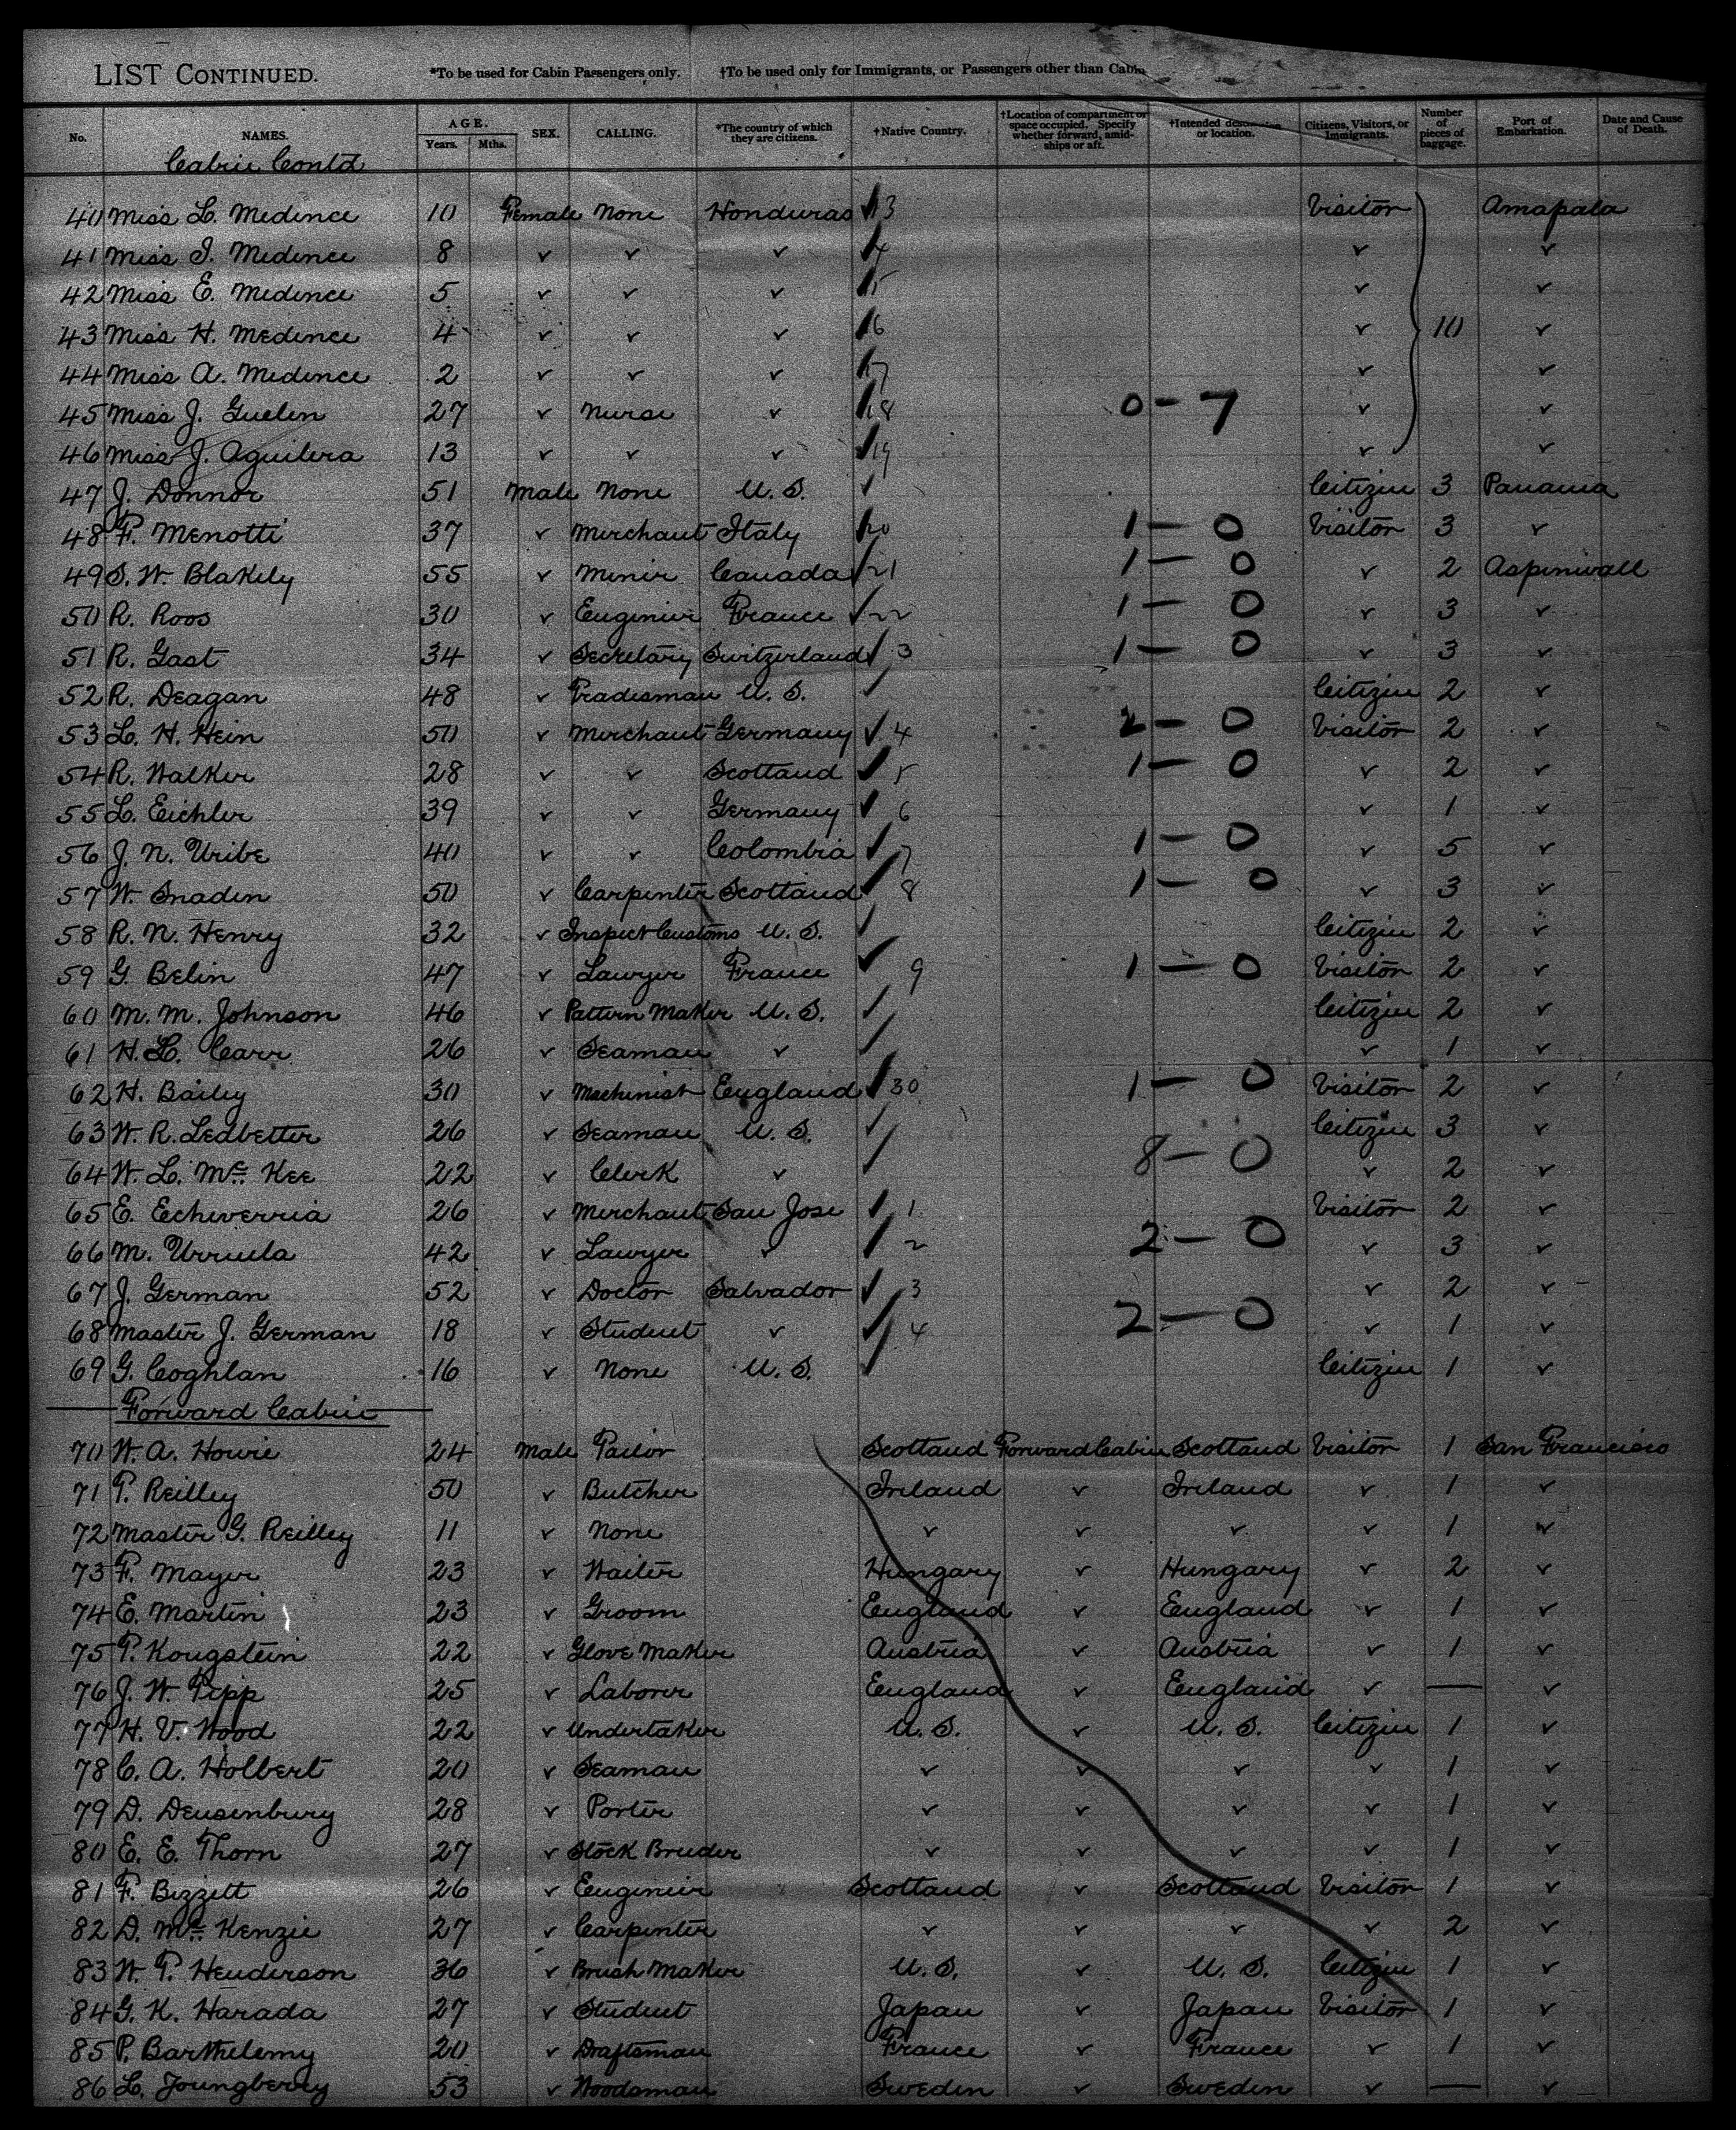 LIST CONTINUED. *To be used for Cabin Passengers only. †To be used only for Immigrants, or Passengers other than Cabin
No. NAMES. AGE. Years. Mths. SEX. CALLING. *The country of which they are citizens. †Native Country. †Location of compartment or space occupied. Specify whether forward, amidships or aft. †Intended destination or location. Citizens, Visitors, or Immigrants. Number of pieces of baggage. Port of Embarkation. Date and Cause of Death.
Cabin Contd
40 Miss L. Medince 10 Female None Honduras 13 Visitor Amapala
41 Miss I. Medince 8 ✓ ✓ ✓ 4 ✓ ✓
42 Miss E. Medince 5 ✓ ✓ ✓ 15 ✓ ✓
43 Miss H. Medince 4 ✓ ✓ ✓ 16 ✓ 10 ✓
44 Miss A. Medince 2 ✓ ✓ ✓ 17 ✓ ✓
45 Miss J. Guelen 27 ✓ Nurse ✓ 18 0-7 ✓ ✓
46 Miss J. Aguilera 13 ✓ ✓ ✓ 19 ✓ ✓
47 J. Donnor 51 Male None U. S. ✓ Citizen 3 Panama
48 F. Menotti 37 ✓ Merchant Italy 20 1-0 Visitor 3 ✓
49 S. W. Blakely 55 ✓ Miner Canada 21 1-0 ✓ 2 Aspinwall
50 R. Roos 30 ✓ Engineer France ✓ 22 1-0 ✓ 3 ✓
51 R. Gast 34 ✓ Secretary Switzerland ✓ 3 1-0 ✓ 3 ✓
52 R. Deagan 48 ✓ Tradesman U. S. ✓ Citizen 2 ✓
53 L. H. Hein 50 ✓ Merchant Germany ✓ 4 2-0 Visitor 2 ✓
54 R. Walker 28 ✓ ✓ Scotland ✓ 5 1-0 ✓ 2 ✓
55 L. Eichler 39 ✓ ✓ Germany ✓ 6 ✓ 1 ✓
56 J. N. Uribe 40 ✓ ✓ Colombia ✓ 7 1-0 ✓ 5 ✓
57 W. Snaden 50 ✓ Carpenter Scotland ✓ 8 1-0 ✓ 3 ✓
58 R. N. Henry 32 ✓ Inspect Customs U. S. ✓ Citizen 2 ✓
59 G. Belin 47 ✓ Lawyer France ✓ 9 1-0 Visitor 2 ✓
60 M. M. Johnson 46 ✓ Pattern Maker U. S. ✓ Citizen 2 ✓
61 H. L. Carr 26 ✓ Seaman ✓ ✓ ✓ 1 ✓
62 H. Bailey 30 ✓ Machinist England ✓ 30 1-0 Visitor 2 ✓
63 W. R. Ledbetter 26 ✓ Seaman U. S. ✓ Citizen 3 ✓
64 W. L. McKee 22 ✓ Clerk ✓ ✓ 8-0 ✓ 2 ✓
65 E. Echeverria 26 ✓ Merchant San Jose ✓ 1 Visitor 2 ✓
66 M. Urrula 42 ✓ Lawyer ✓ ✓ 2 2-0 ✓ 3 ✓
67 J. German 52 ✓ Doctor Salvador ✓ 3 ✓ 2 ✓
68 Master J. German 18 ✓ Student ✓ ✓ 4 2-0 ✓ 1 ✓
69 G. Coghlan 16 ✓ None U. S. ✓ Citizen 1 ✓
Forward Cabin
70 W. A. Howie 24 Male Tailor Scotland Forward Cabin Scotland Visitor 1 San Francisco
71 T. Reilley 50 ✓ Butcher Ireland ✓ Ireland ✓ 1 ✓
72 Master G. Reilley 11 ✓ None ✓ ✓ ✓ ✓ 1 ✓
73 F. Mayer 23 ✓ Waiter Hungary ✓ Hungary ✓ 2 ✓
74 E. Martin 23 ✓ Groom England ✓ England ✓ 1 ✓
75 T. Kougstein 22 ✓ Glove Maker Austria ✓ Austria ✓ 1 ✓
76 J. W. Tipp 25 ✓ Laborer England ✓ England ✓ — ✓
77 H. V. Wood 22 ✓ Undertaker U. S. ✓ U. S. Citizen 1 ✓
78 C. A. Holbert 20 ✓ Seaman ✓ ✓ ✓ ✓ 1 ✓
79 D. Deusenbury 28 ✓ Porter ✓ ✓ ✓ ✓ 1 ✓
80 E. E. Thorn 27 ✓ Stock Breeder ✓ ✓ ✓ ✓ 1 ✓
81 F. Bizzett 26 ✓ Engineer Scotland ✓ Scotland Visitor 1 ✓
82 D. McKenzie 27 ✓ Carpenter ✓ ✓ ✓ ✓ 2 ✓
83 W. T. Henderson 36 ✓ Brush Maker U. S. ✓ U. S. Citizen 1 ✓
84 G. K. Harada 27 ✓ Student Japan ✓ Japan Visitor 1 ✓
85 P. Barthelemy 20 ✓ Draftsman France ✓ France ✓ 1 ✓
86 L. Joungberry 53 ✓ Woodsman Sweden ✓ Sweden ✓ — ✓